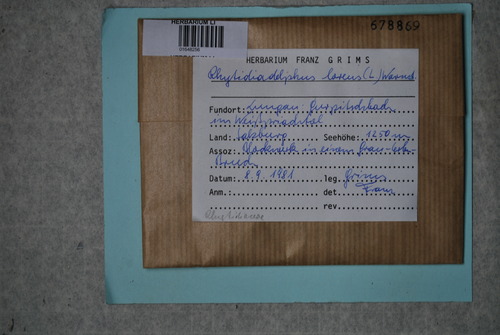 HERBARIUM LI
678869
HERBARIUM FRANZ GRIMS
Rhytidiadelphus loreus (L.) Warnst.
Fundort: Lungau:
im Weißpriachtal
Land: Salzburg Seehöhe: 1250 m
Assoz: Blockwerk in einem
Datum: 8.9.1981 leg. Grims
Anm.: det. Franz
rev.